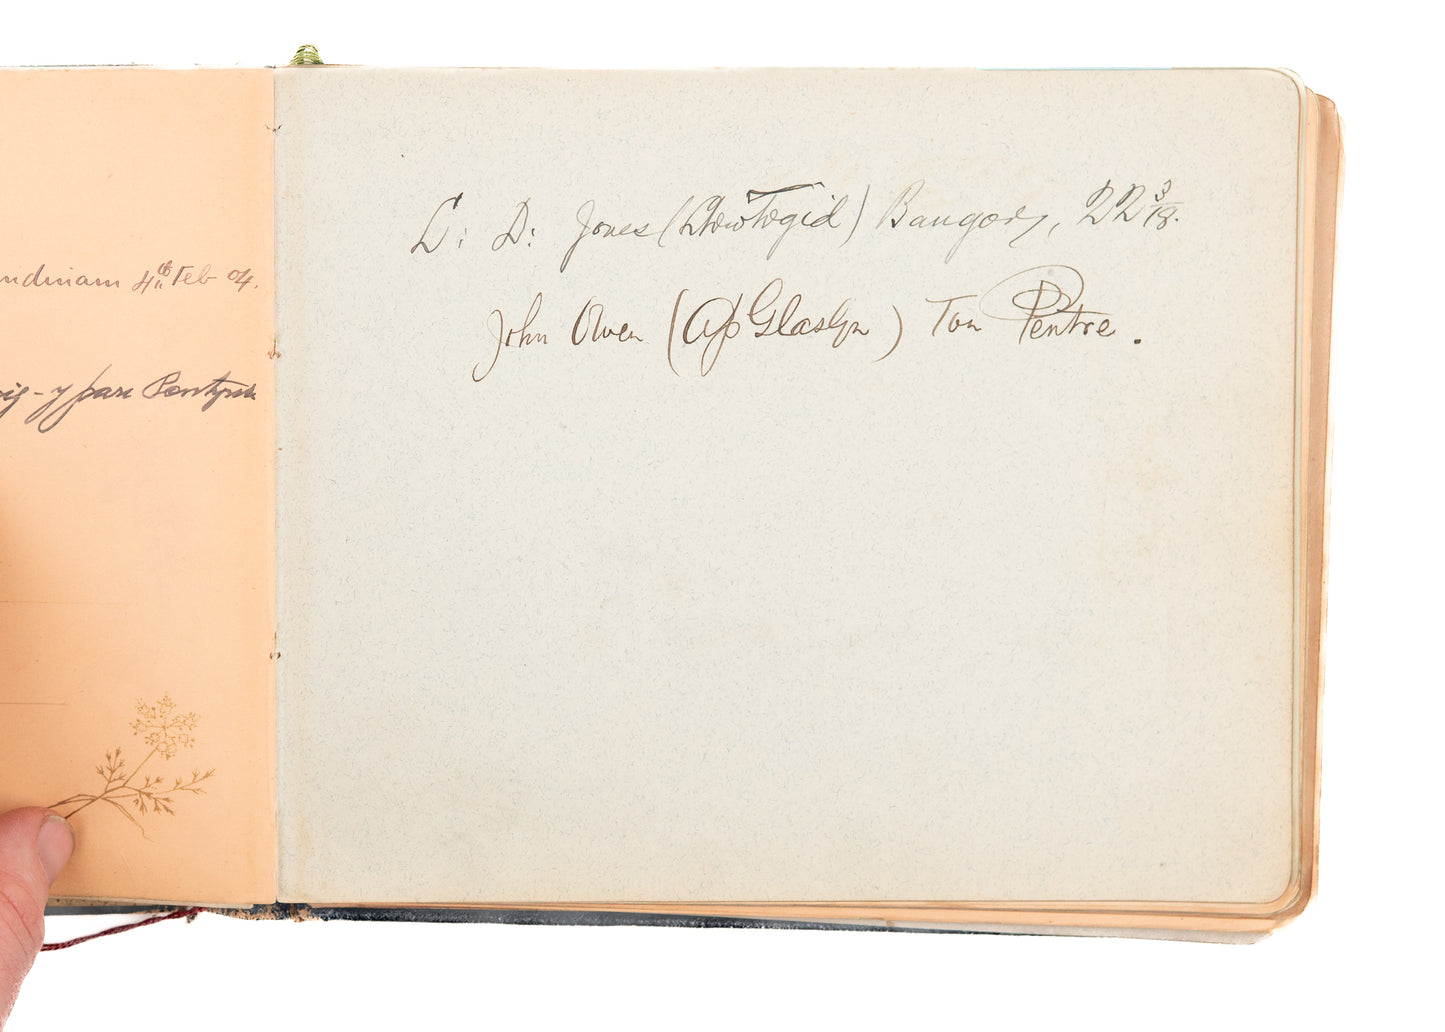 4th Feb 04.
- y parc
L: D: Jones (Llew Tegid) Bangor, 22 3/18.
John Owen (Ap Glaslyn) Ton Pentre.